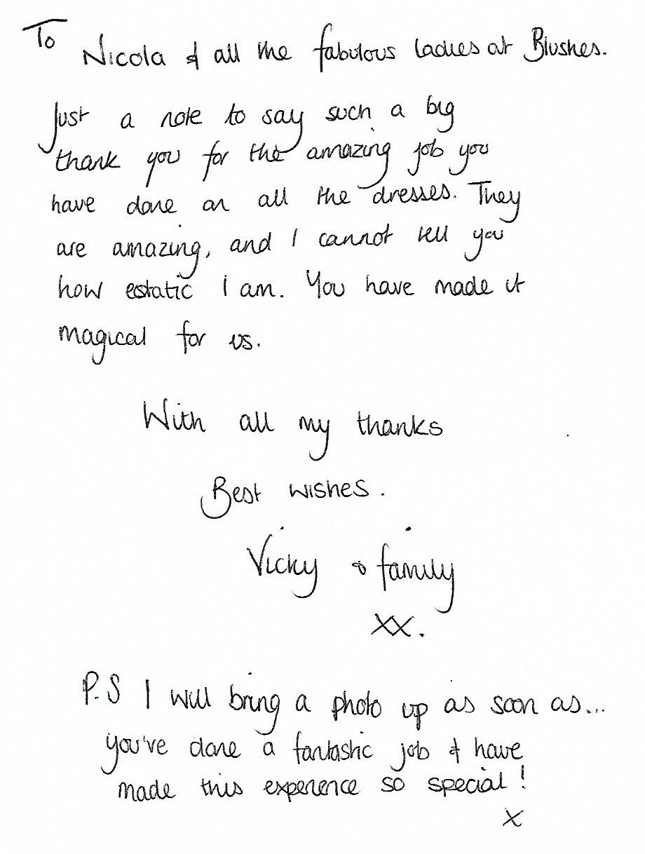 To Nicola & all the fabulous ladies at Blushes.
Just a note to say such a big
thank you for the amazing job you
have done on all the dresses. They
are amazing, and I cannot tell you
how estatic I am. You have made it
magical for us.
With all my thanks
Best wishes.
Vicky & family
xx.
P.S I will bring a photo up as soon as...
you've done a fantastic job & have
made this experience so special!
x